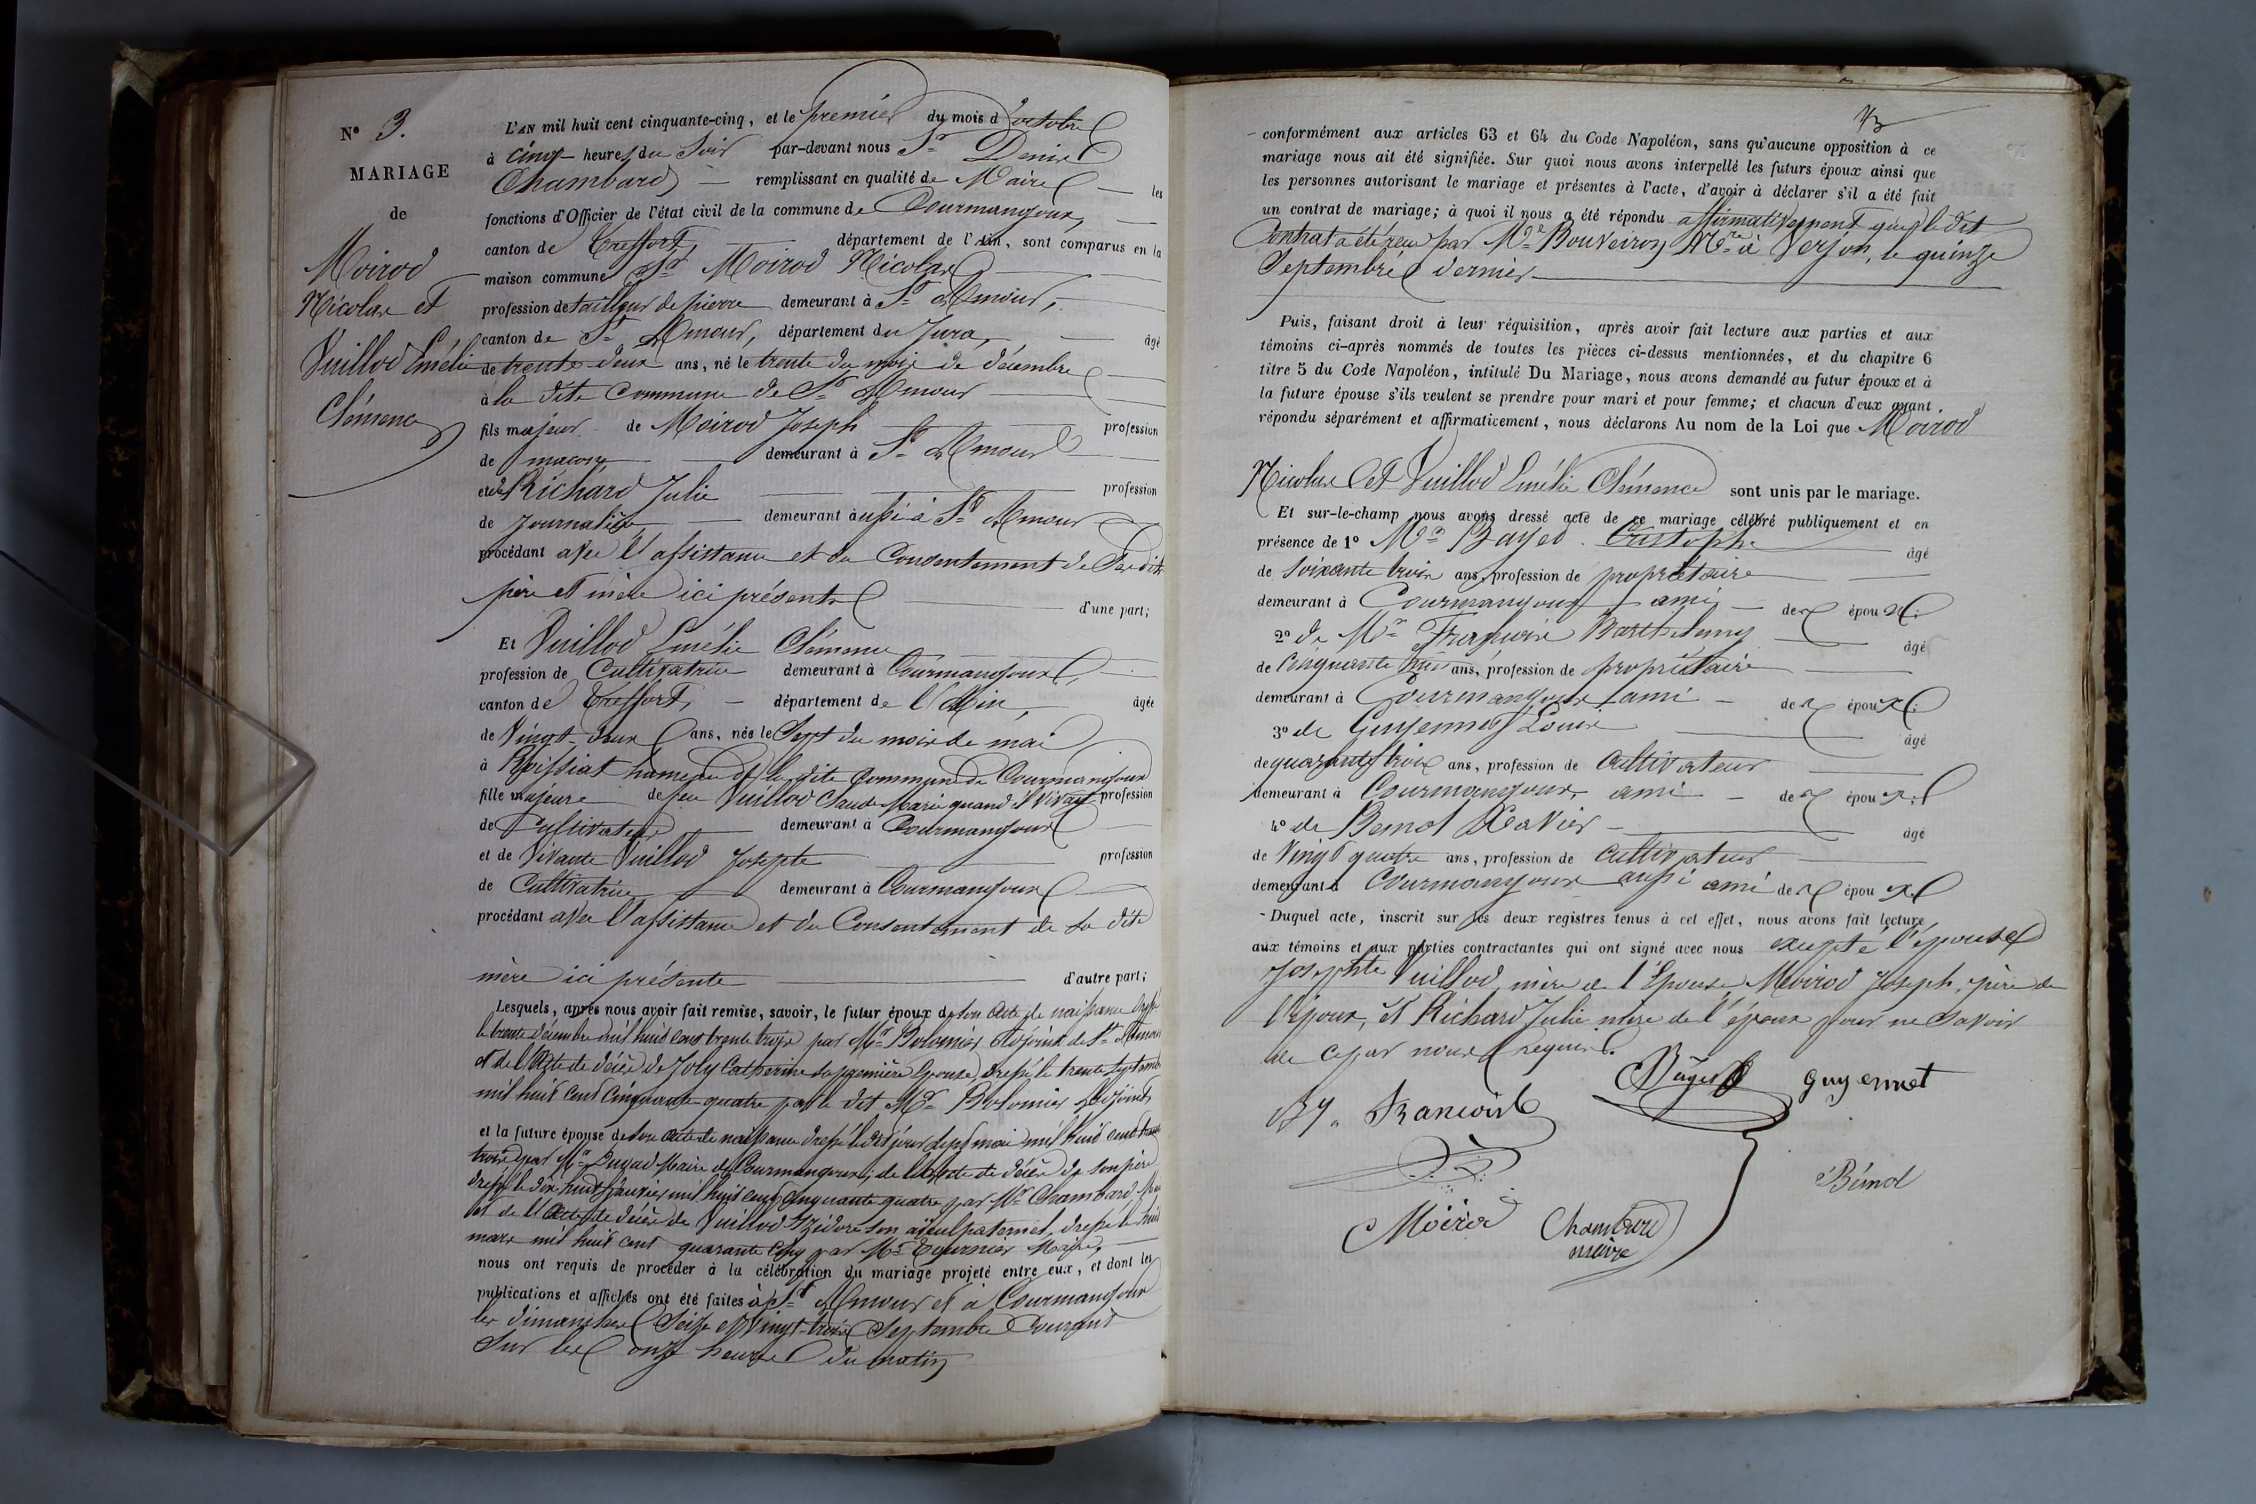 N° 3.
MARIAGE
de
Moirod
Nicolas et
Vuillod Emélie
Clémence
L'AN mil huit cent cinquante-cinq, et le premier du mois d'octobre
à cinq heures du soir par-devant nous Sr Denis
Chambard remplissant en qualité de Maire les
fonctions d'Officier de l'état civil de la commune de Courmangoux,
canton de Treffort, département de l'Ain, sont comparus en la
maison commune Sr Moirod Nicolas
profession de tailleur de pierre demeurant à St Amour,
canton de St Amour, département du Jura, âgé
de trente deux ans, né le trente du mois de décembre
à la dite commune de St Amour
fils majeur de Moirod Joseph profession
de maçon demeurant à St Amour
et de Richard Julie profession
de journalière demeurant aussi à St Amour
procédant avec l'assistance et du Consentement de ses dits
père et mère ici présents d'une part;
Et Vuillod Emélie Clémence
profession de Cultivatrice demeurant à Courmangoux,
canton de Treffort, département de l'Ain, âgée
de Vingt-deux ans, née le Sept du mois de mai
à Roissiat hameau de la dite Commune de Courmangoux
fille majeure de feu Vuillod Claude Marie quand il vivait profession
de Cultivateur demeurant à Courmangoux
et de Vivante Vuillod Josephte profession
de Cultivatrice demeurant à Courmangoux
procédant avec l'assistance et du Consentement de sa dite
mère ici présente d'autre part;
Lesquels, après nous avoir fait remise, savoir, le futur époux de son acte de naissance dressé
le trente décembre mil huit cent trente trois par Mr Bolomier Adjoint de St Amour
et de l'Acte de décès de Joly Catherine sa première Epouse, dressé le trente septembre
mil huit cent cinquante quatre par le dit Mr Bolomier Adjoint
et la future épouse de son acte de naissance dressé le dit jour sept mai mil huit cent trente
trois par Mr Maire de Courmangoux; de l'Acte de décès de son père
dressé le dix huit Janvier mil huit cent cinquante quatre par Mr Chambard, Maire
et de l'Acte de décès de Vuillod Izidore son aïeul paternel, dressé le huit
mars mil huit cent quarante cinq par Mr Tournier Maire,
nous ont requis de procéder à la célébration du mariage projeté entre eux, et dont les
publications et affiches ont été faites à St Amour et à Courmangoux
les dimanches Seize et Vingt-trois Septembre Courant
Sur les onze heures du matin
conformément aux articles 63 et 64 du Code Napoléon, sans qu'aucune opposition à ce
mariage nous ait été signifiée. Sur quoi nous avons interpellé les futurs époux ainsi que
les personnes autorisant le mariage et présentes à l'acte, d'avoir à déclarer s'il a été fait
un contrat de mariage; à quoi il nous a été répondu affirmativement que le dit
Contrat a été reçu par Me Bouveiron Nre à Verjon, le quinze
Septembre dernier
Puis, faisant droit à leur réquisition, après avoir fait lecture aux parties et aux
témoins ci-après nommés de toutes les pièces ci-dessus mentionnées, et du chapitre 6
titre 5 du Code Napoléon, intitulé Du Mariage, nous avons demandé au futur époux et à
la future épouse s'ils veulent se prendre pour mari et pour femme; et chacun d'eux ayant
répondu séparément et affirmativement, nous déclarons Au nom de la Loi que Moirod
Nicolas et Vuillod Emélie Clémence sont unis par le mariage.
Et sur-le-champ nous avons dressé acte de ce mariage célébré publiquement et en
présence de 1° Mr Buyed Cristophe âgé
de soixante trois ans, profession de propriétaire
demeurant à Courmangoux ami des époux;
2° de Mr François Barthelemy âgé
de Cinquante ans, profession de propriétaire
demeurant à Courmangoux ami des époux;
3° de Guyennet Louis âgé
de quarante trois ans, profession de Cultivateur
demeurant à Courmangoux ami des époux;
4° de Bemol Xavier âgé
de Vingt quatre ans, profession de cultivateur
demeurant à Courmangoux aussi ami des époux.
Duquel acte, inscrit sur les deux registres tenus à cet effet, nous avons fait lecture
aux témoins et aux parties contractantes qui ont signé avec nous excepté l'épouse
Josephte Vuillod, mère de l'Epouse, Moirod Joseph, père de
l'époux, et Richard Julie mère de l'époux pour ne savoir
de ce par nous requis.
By. François guyennet
Bémol
Moirod Chambard
maire